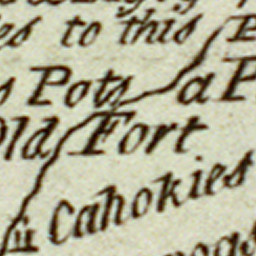 to this
Pots a P
Old Fort
Cahokies